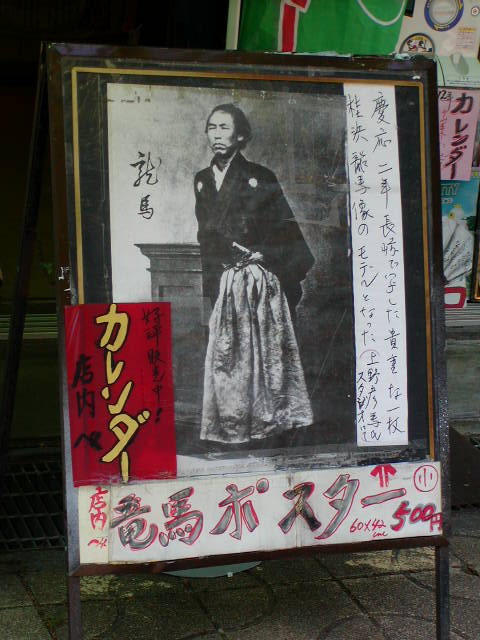 慶応二年長崎で写した貴重な一枚
桂浜龍馬像のモデルとなった(上野彦馬の
スタジオにて
龍馬
好評販売中!
カレンダー
店内へ
店内へ
竜馬ポスター
小
60×42
cm
500円
カレンダー